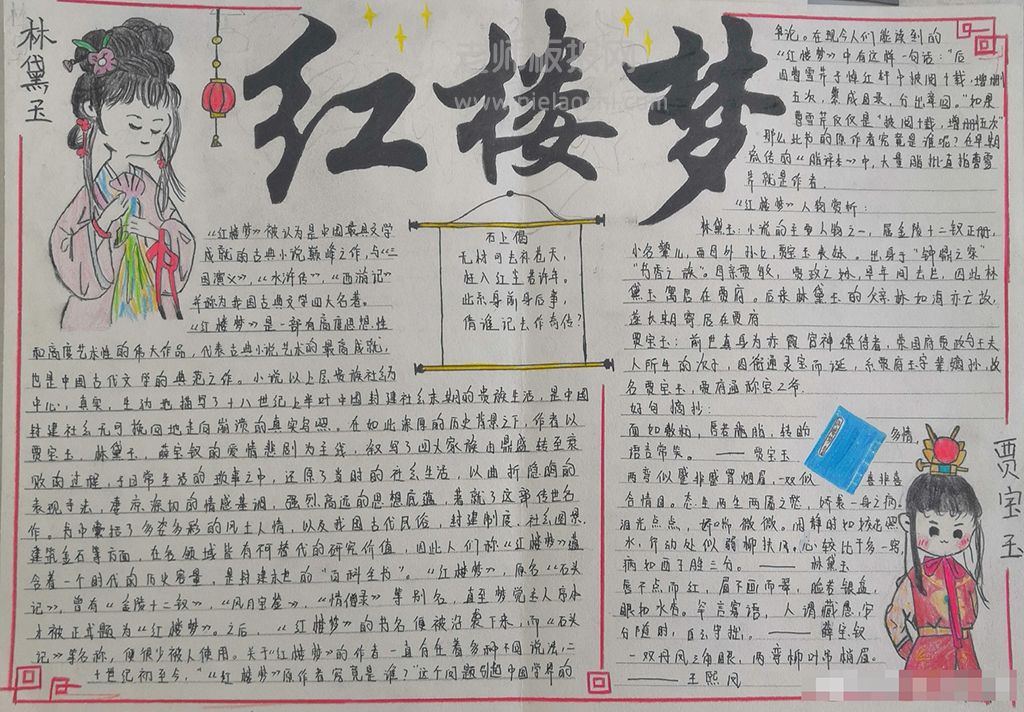 林黛玉
红楼梦
老师板报网
《红楼梦》被认为是中国最具文学
成就的古典小说巅峰之作,与《三
国演义》,《水浒传》,《西游记》
并称为我国古典文学四大名著。
《红楼梦》是一部有高度思想性
和高度艺术性的伟大作品,代表古典小说艺术的最高成就,
也是中国古代文学的典范之作。小说以上层贵族社会为
中心,真实,生动地描写了十八世纪上半叶中国封建社会末期的贵族生活,是中国
封建社会无可挽回地走向崩溃的真实写照。在如此深厚的历史背景之下,作者以
贾宝玉,林黛玉,薛宝钗的爱情悲剧为主线,叙写了四大家族由鼎盛转至衰
败的过程,于日常生活的故事之中,还原了当时的社会生活,以曲折隐晦的
表现手法,凄凉深切的情感基调,强烈高远的思想底蕴,著就了这部传世名
作。书中囊括了多姿多彩的风土人情,以及我国古代民俗,封建制度,社会图景,
建筑金石等方面,在各领域皆有不可替代的研究价值,因此人们称《红楼梦》蕴
含着一个时代的历史容量,是封建末世的“百科全书”。《红楼梦》,原名《石头
记》,曾有《金陵十二钗》,《风月宝鉴》,《情僧录》等别名,直至梦觉主人序本
才被正式题为《红楼梦》。之后,《红楼梦》的书名便被沿袭下来,而《石头
记》等名称,便很少被人使用。关于《红楼梦》的作者一直存在着多种不同说法,二
十世纪初至今,“《红楼梦》原作者究竟是谁?”这个问题引起中国学界的
石上偈
无材可去补苍天,
枉入红尘若许年。
此系身前身后事,
倩谁记去作奇传?
争论。在现今人们能读到的
《红楼梦》中有这样一句话:“后
因曹雪芹于悼红轩中披阅十载,增删
五次,纂成目录,分出章回。”如果
曹雪芹仅仅是“披阅十载,增删五次”
那么此书的原作者究竟是谁呢?在早期
流传的《脂评本》中,大量脂批直指曹雪
芹就是作者.
《红楼梦》人物赏析:
林黛玉:小说的主要人物之一,居金陵十二钗正册,
贾宝玉:前世真身为赤霞宫神瑛侍者,荣国府贾政与王夫
人所生的次子,因衔通灵宝玉而诞,系贾府玉字辈嫡孙,故
名贾宝玉,贾府通称宝二爷.
好句摘抄:
面如敷粉,唇若施脂,转盼
多情,
语言常笑。——贾宝玉
两弯似蹙非蹙罥烟眉,一双似
喜非喜
含情目。态生两靥之愁,娇袭一身之病。
泪光点点,娇喘微微。闲静时如姣花照
水,行动处似弱柳扶风。心较比干多一窍,
病如西子胜三分。——林黛玉
唇不点而红,眉不画而翠,脸若银盘,
眼如水杏。罕言寡语,人谓藏愚,安
分随时,自云守拙。——薛宝钗
一双丹凤三角眼,两弯柳叶吊梢眉。
——王熙凤
贾宝玉